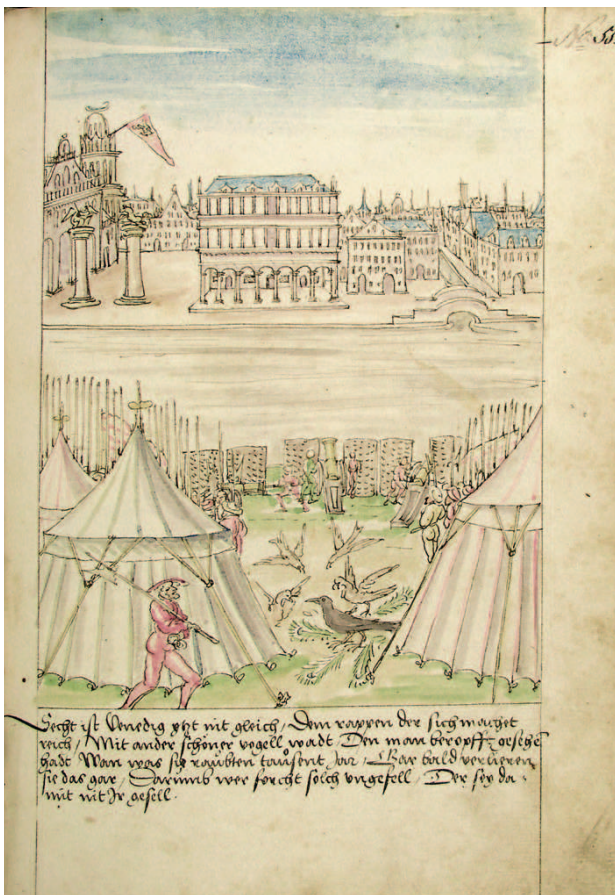 No 55
Secht ist Venedig yht nit gleich / Dem rappen der sich machet
reich / Mit ander schöner vogell wadt / Den man beropfft gesehē
hadt Wan was sy raubten tausent Jar / Gar bald verlieren
sie das gar / Darumb wer forcht solch vngefell / Der sey da-
mit nit Jr gesell.